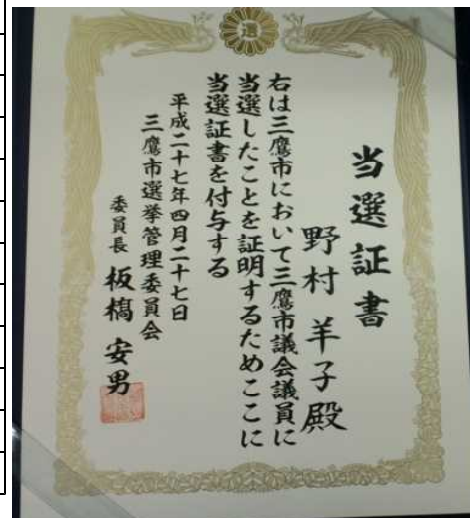 選
当選証書
野村羊子殿
右は三鷹市において三鷹市議会議員に
当選したことを証明するためここに
当選証書を付与する
平成二十七年四月二十七日
三鷹市選挙管理委員会
委員長 板橋 安男